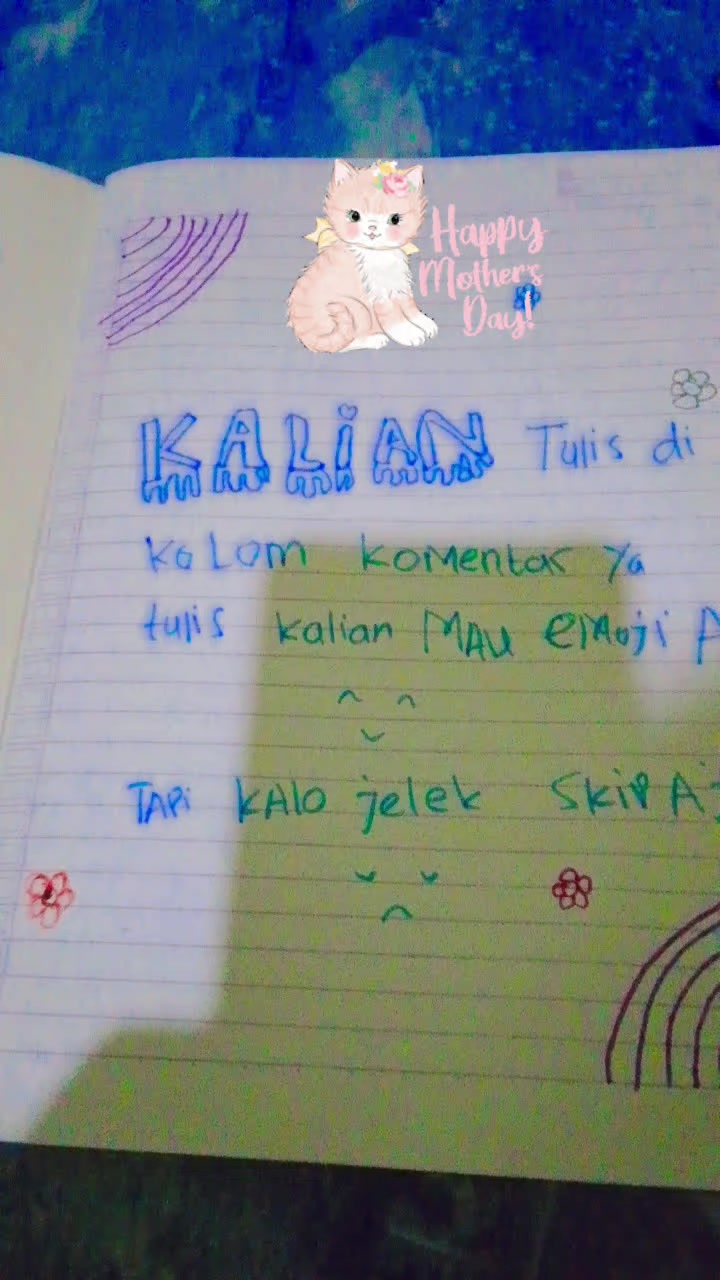 Happy
Mother's
Day!
KALiAN Tulis di
koLom komentar ya
tulis kalian MAU emoji
TAPi KAlo jelek SkiP